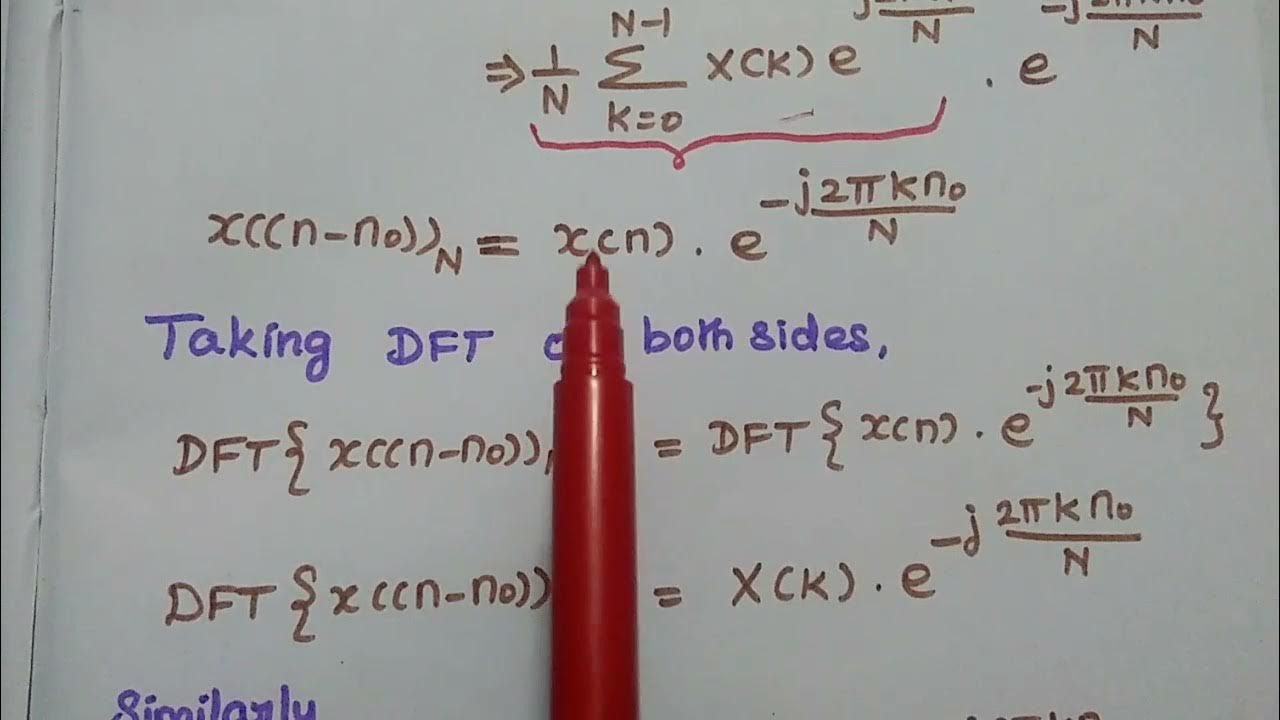 ⇒ 1/N Σ_{k=0}^{N-1} X(k) e^{j.../N} . e^{-j.../N}
x((n-n₀))_N = x(n) . e^{-j2πkn₀/N}
Taking DFT both sides,
DFT{x((n-n₀)) = DFT{x(n) . e^{-j2πkn₀/N}}
DFT{x((n-n₀)) = X(k) . e^{-j2πkn₀/N}
Similarly